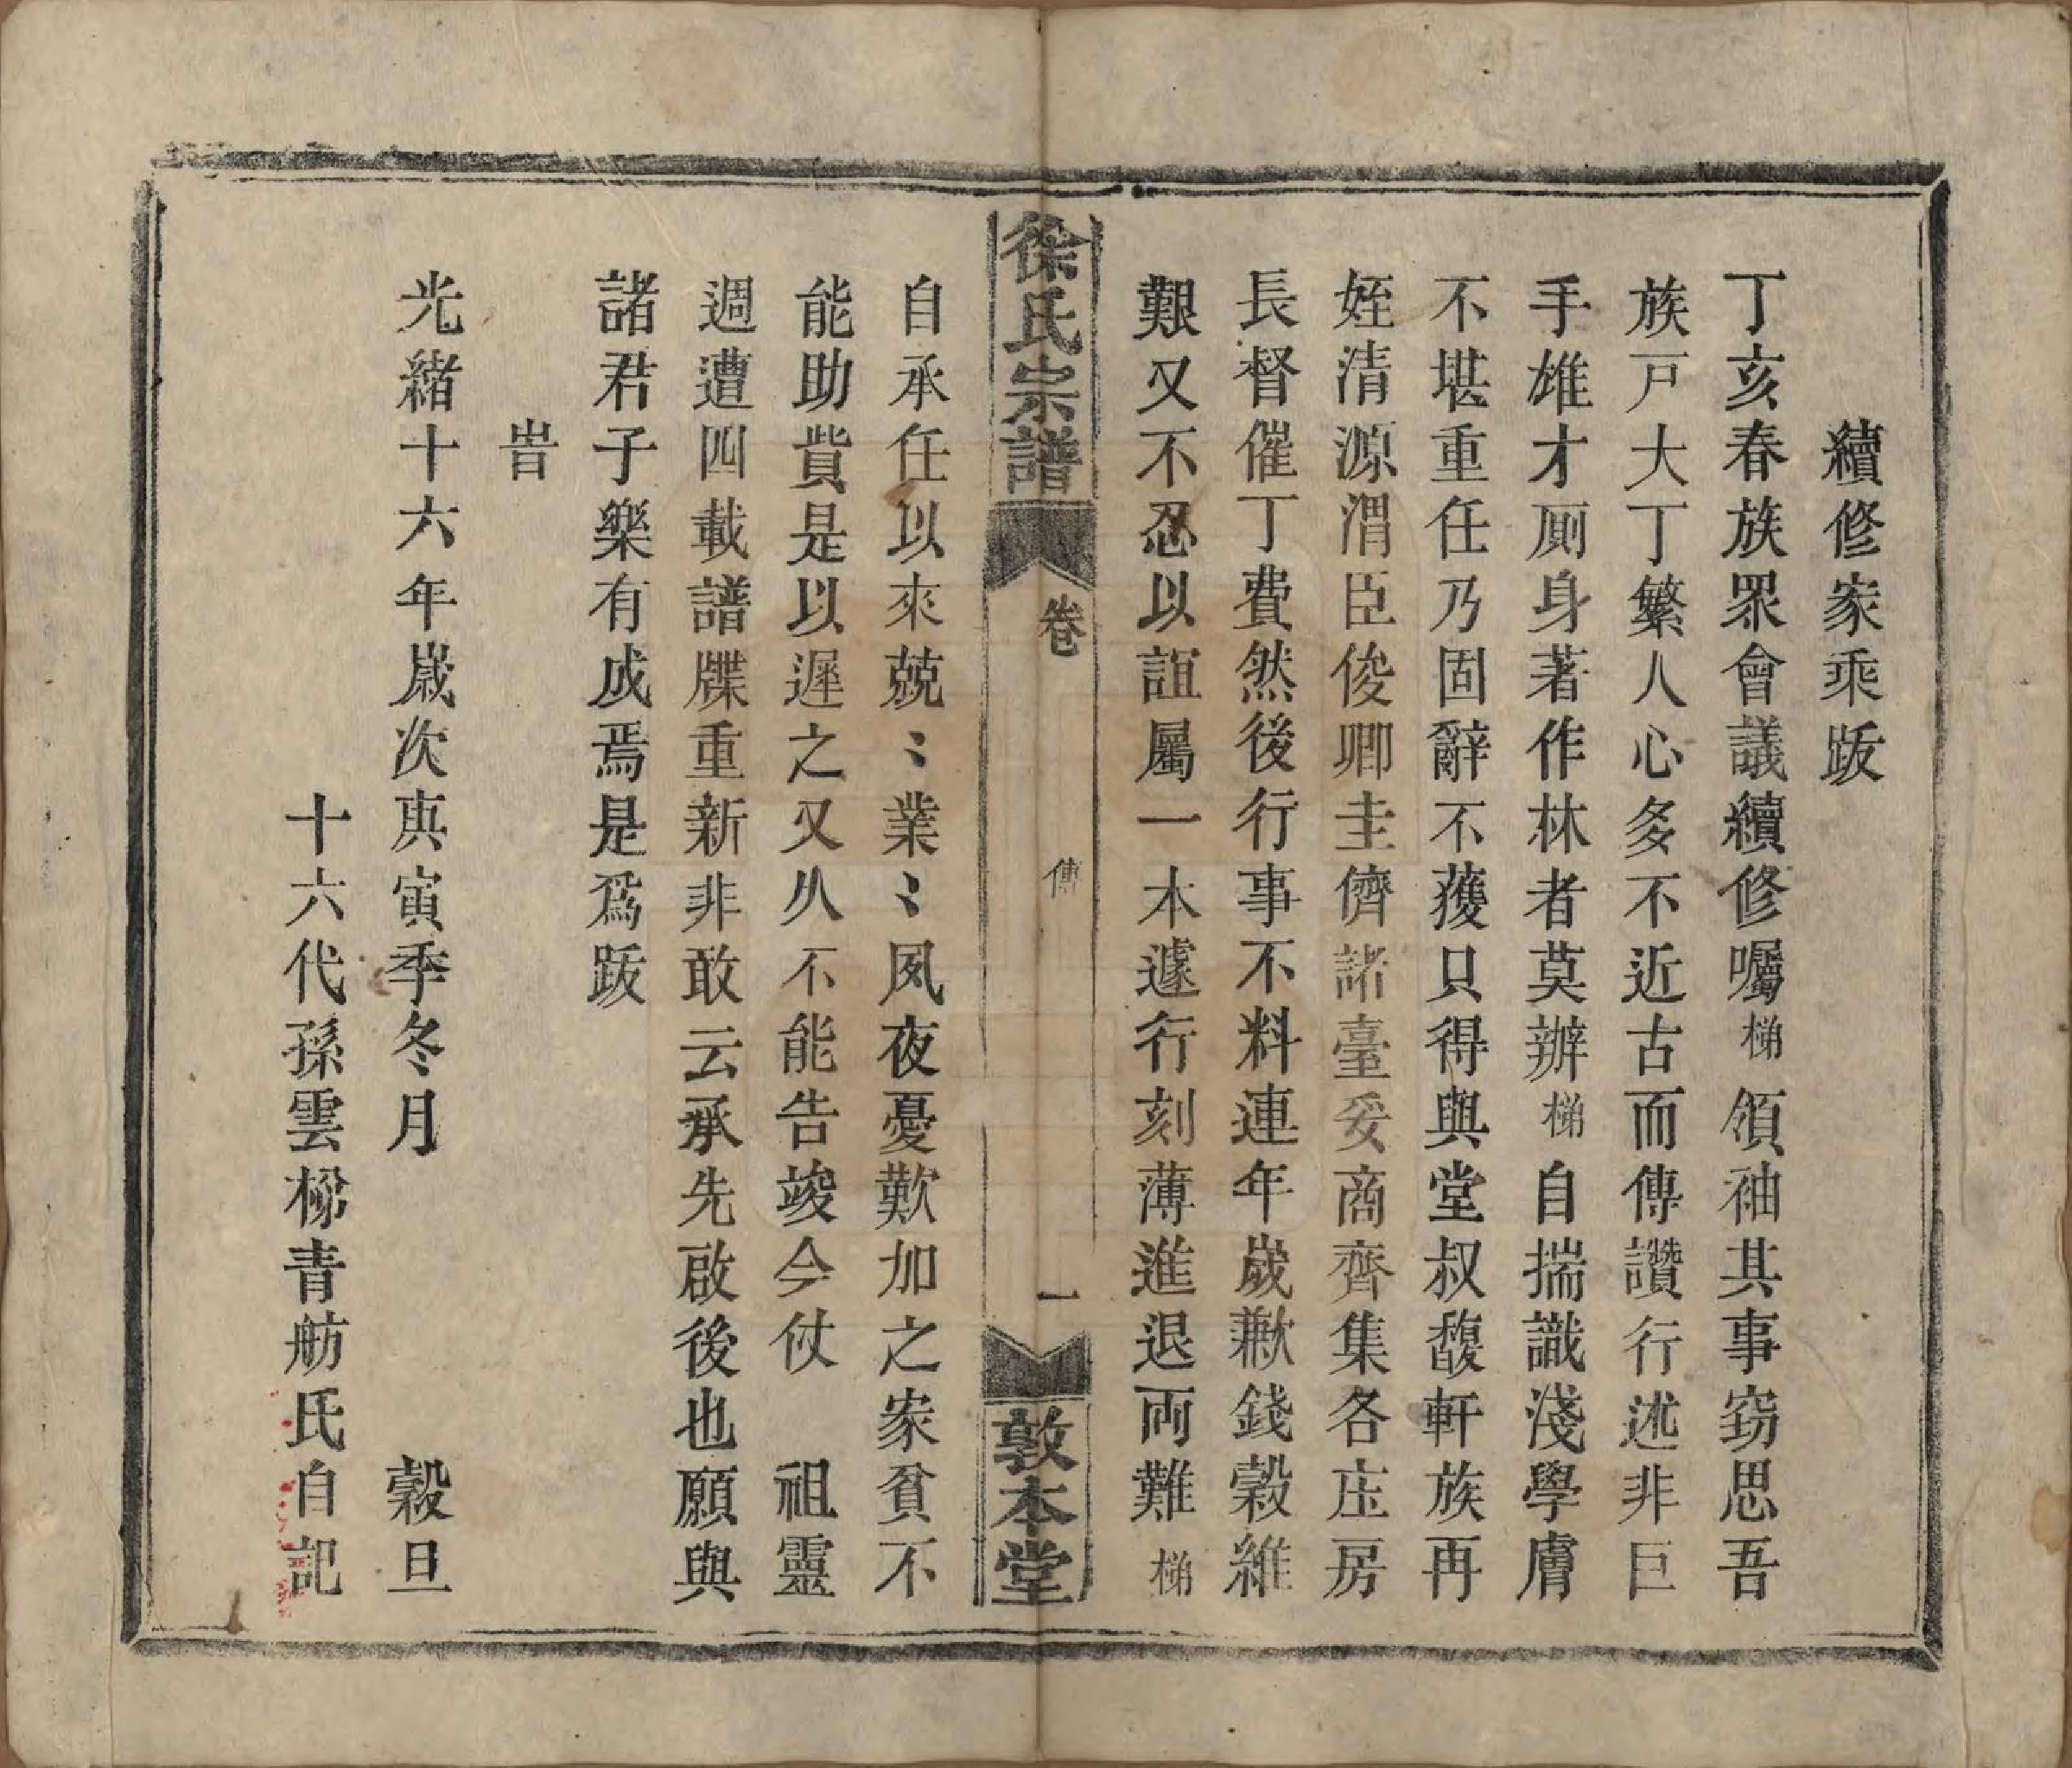 續修家乘跋
丁亥春族眾會議續修囑梯領袖其事窃思吾
族戸大丁繁人心多不近古而傳讚行述非巨
手雄才厠身著作林者莫辦梯自揣識淺學膚
不堪重任乃固辭不獲只得與堂叔馥軒族再
姪清源渭臣俊卿圭儕諸臺妥商齊集各庄房
長督催丁費然後行事不料連年歲歉錢穀維
艱又不忍以誼屬一本遽行刻薄進退兩難梯
徐氏宗譜
卷
傳
一
敦本堂
自承任以來兢〻業〻夙夜憂歎加之家貧不
能助貲是以遲之又久不能告竣今仗　祖靈
週遭四載譜牒重新非敢云承先啟後也願與
諸君子樂有成焉是爲跋
旹
光緒十六年歲次庚寅季冬月　　　　穀旦
十六代孫雲梯青舫氏自記